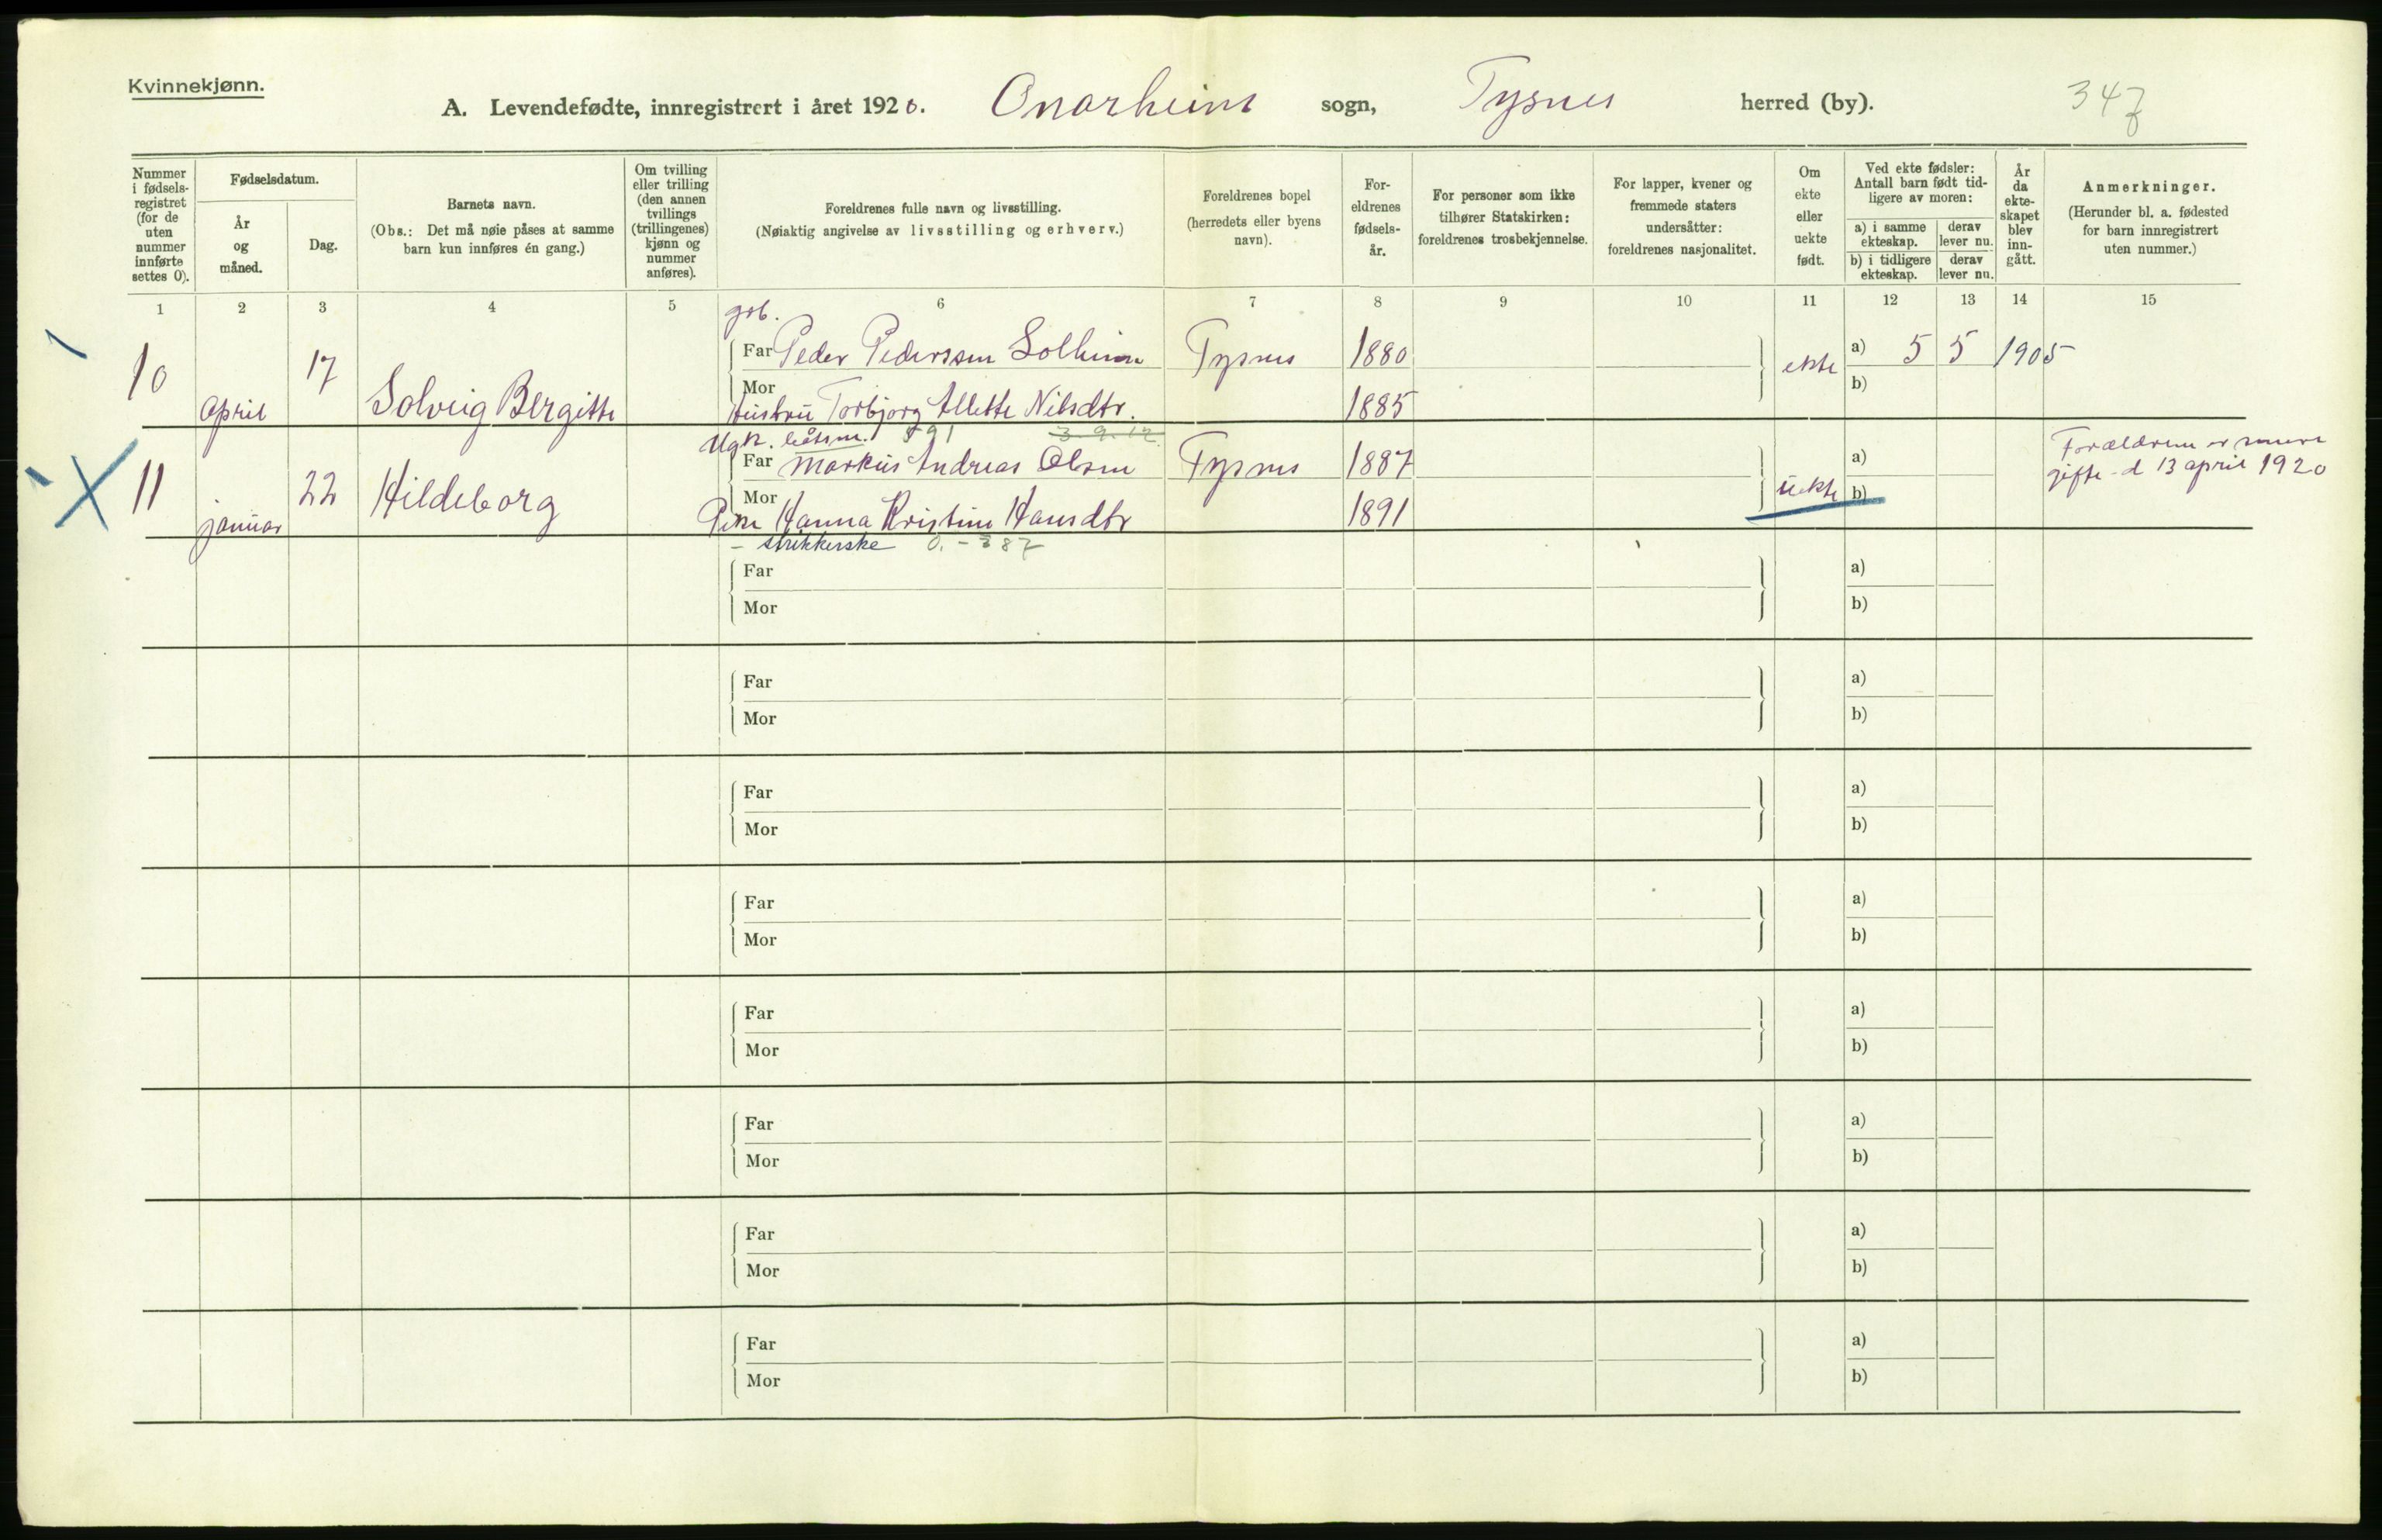 Kvinnekjønn.
A. Levendefødte, innregistrert i året 1920. Onarheim sogn, Tysnes herred (by). 347
Nummer i fødsels-registret (for de uten nummer innførte settes 0).
Fødselsdatum.
År og måned.
Dag.
Barnets navn.
(Obs.: Det må nøie påses at samme barn kun innføres én gang.)
Om tvilling eller trilling (den annen tvillings (trillingenes) kjønn og nummer anføres).
Foreldrenes fulle navn og livsstilling.
(Nøiaktig angivelse av livsstilling og erhverv.)
Foreldrenes bopel (herredets eller byens navn).
For-eldrenes fødsels-år.
For personer som ikke tilhører Statskirken: foreldrenes trosbekjennelse.
For lapper, kvener og fremmede staters undersåtter: foreldrenes nasjonalitet.
Om ekte eller uekte født.
Ved ekte fødsler: Antall barn født tid-ligere av moren:
a) i samme ekteskap.
derav lever nu.
b) i tidligere ekteskap.
derav lever nu.
År da ekte-skapet blev inn-gått.
Anmerkninger.
(Herunder bl. a. fødested for barn innregistrert uten nummer.)
1 2 3 4 5 6 7 8 9 10 11 12 13 14 15
gsb.
10 april 17 Solveig Bergitte
Far Peder Pederssen Solheim Tysnes 1880 ekte a) 5 5 1905
Mor Hustru Torbjørg Allette Nilsdtr. 1885 b)
Ugk. båtsm. 591 3.9.12
11 januar 22 Hildeborg
Far Markus Andreas Olsen Tysnes 1887 uekte a)
Mor Pike Hanna Kristine Hansdtr 1891 b)
Forældrene er senere
gifte d 13 april 1920
- strikkerske 0. - 387
Far a)
Mor b)
Far a)
Mor b)
Far a)
Mor b)
Far a)
Mor b)
Far a)
Mor b)
Far a)
Mor b)
Far a)
Mor b)
Far a)
Mor b)